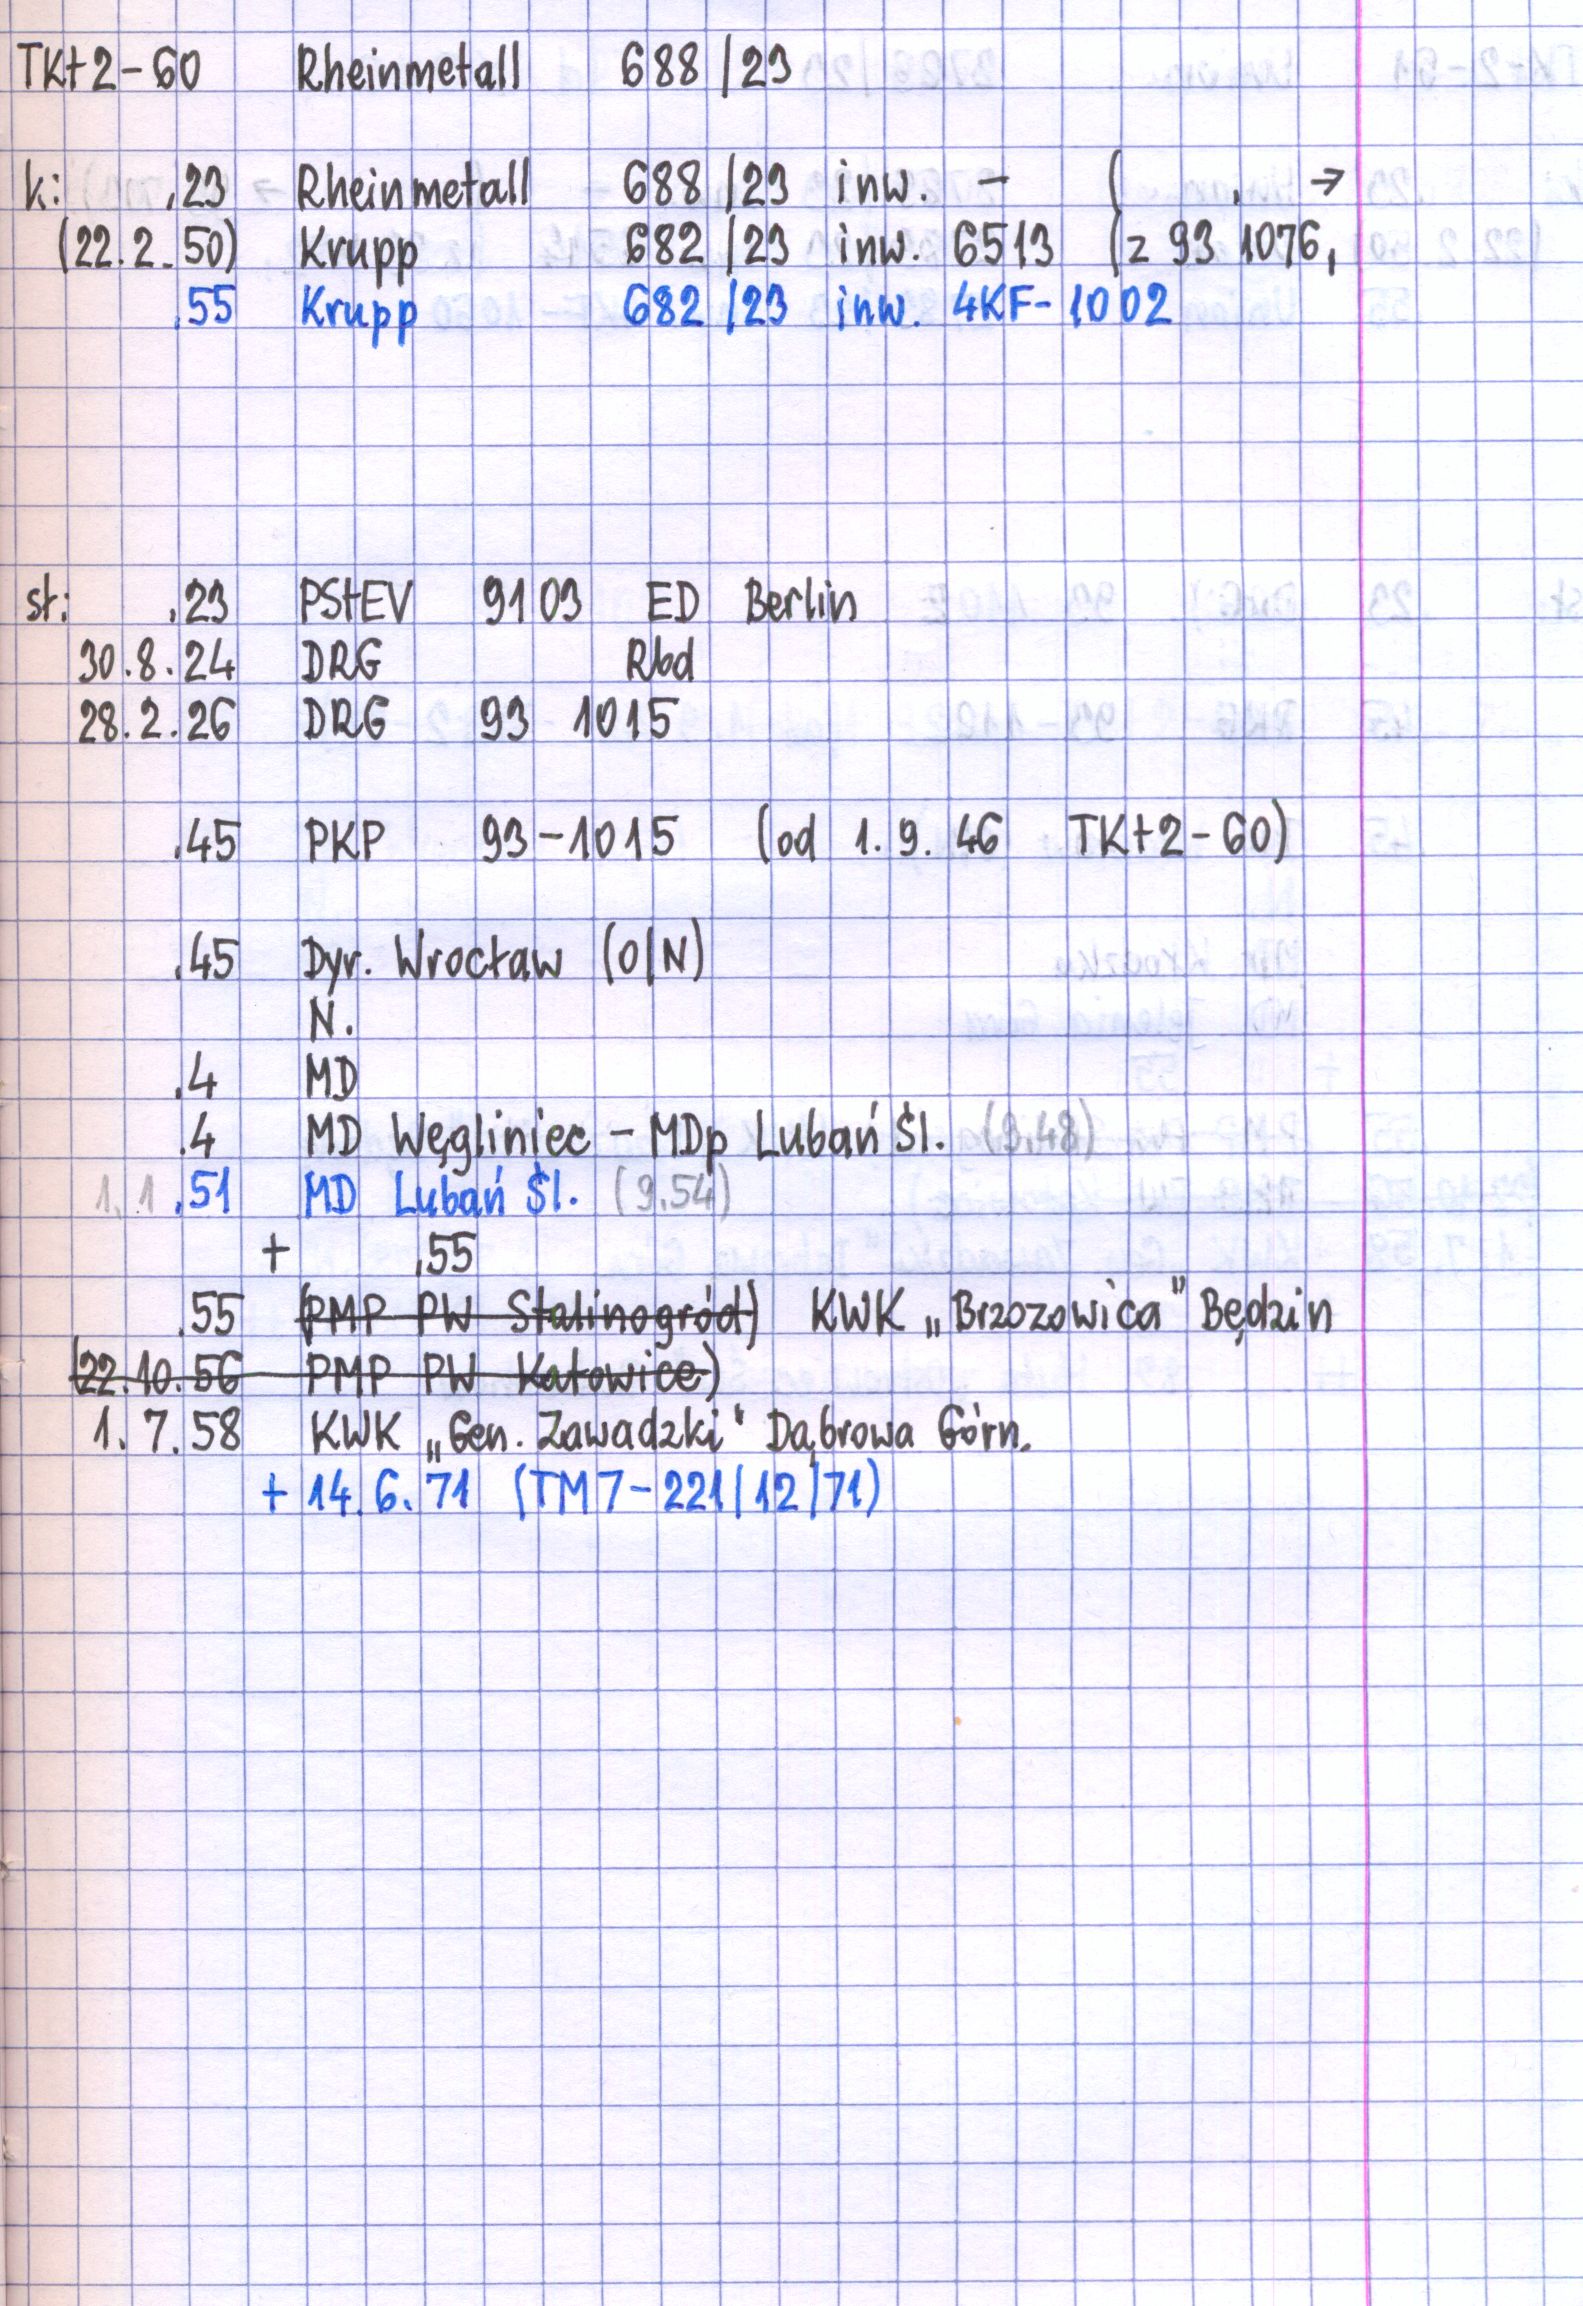 TKt2-60 Rheinmetall 688/23
k: .23 Rheinmetall 688/23 inw. - ( . →
(22.2.50) Krupp 682/23 inw. 6513 (z 93 1076,
.55 Krupp 682/23 inw. 4KF-1002
st: .23 PStEV 9103 ED Berlin
30.8.24 DRG Rbd
28.2.26 DRG 93 1015
.45 PKP 93-1015 (od 1.9.46 TKt2-60)
.45 Dyr. Wrocław (O/N)
N.
.4 MD
.4 MD Węgliniec - MDp Lubań Śl. (9.48)
1.1.51 MD Lubań Śl. (9.54)
+ .55
.55 (PMP PW Stalinogród) KWK „Brzozowica" Będzin
(22.10.56 PMP PW Katowice)
1.7.58 KWK „Gen. Zawadzki" Dąbrowa Górn.
+ 14.6.71 (TM7-221/12/71)